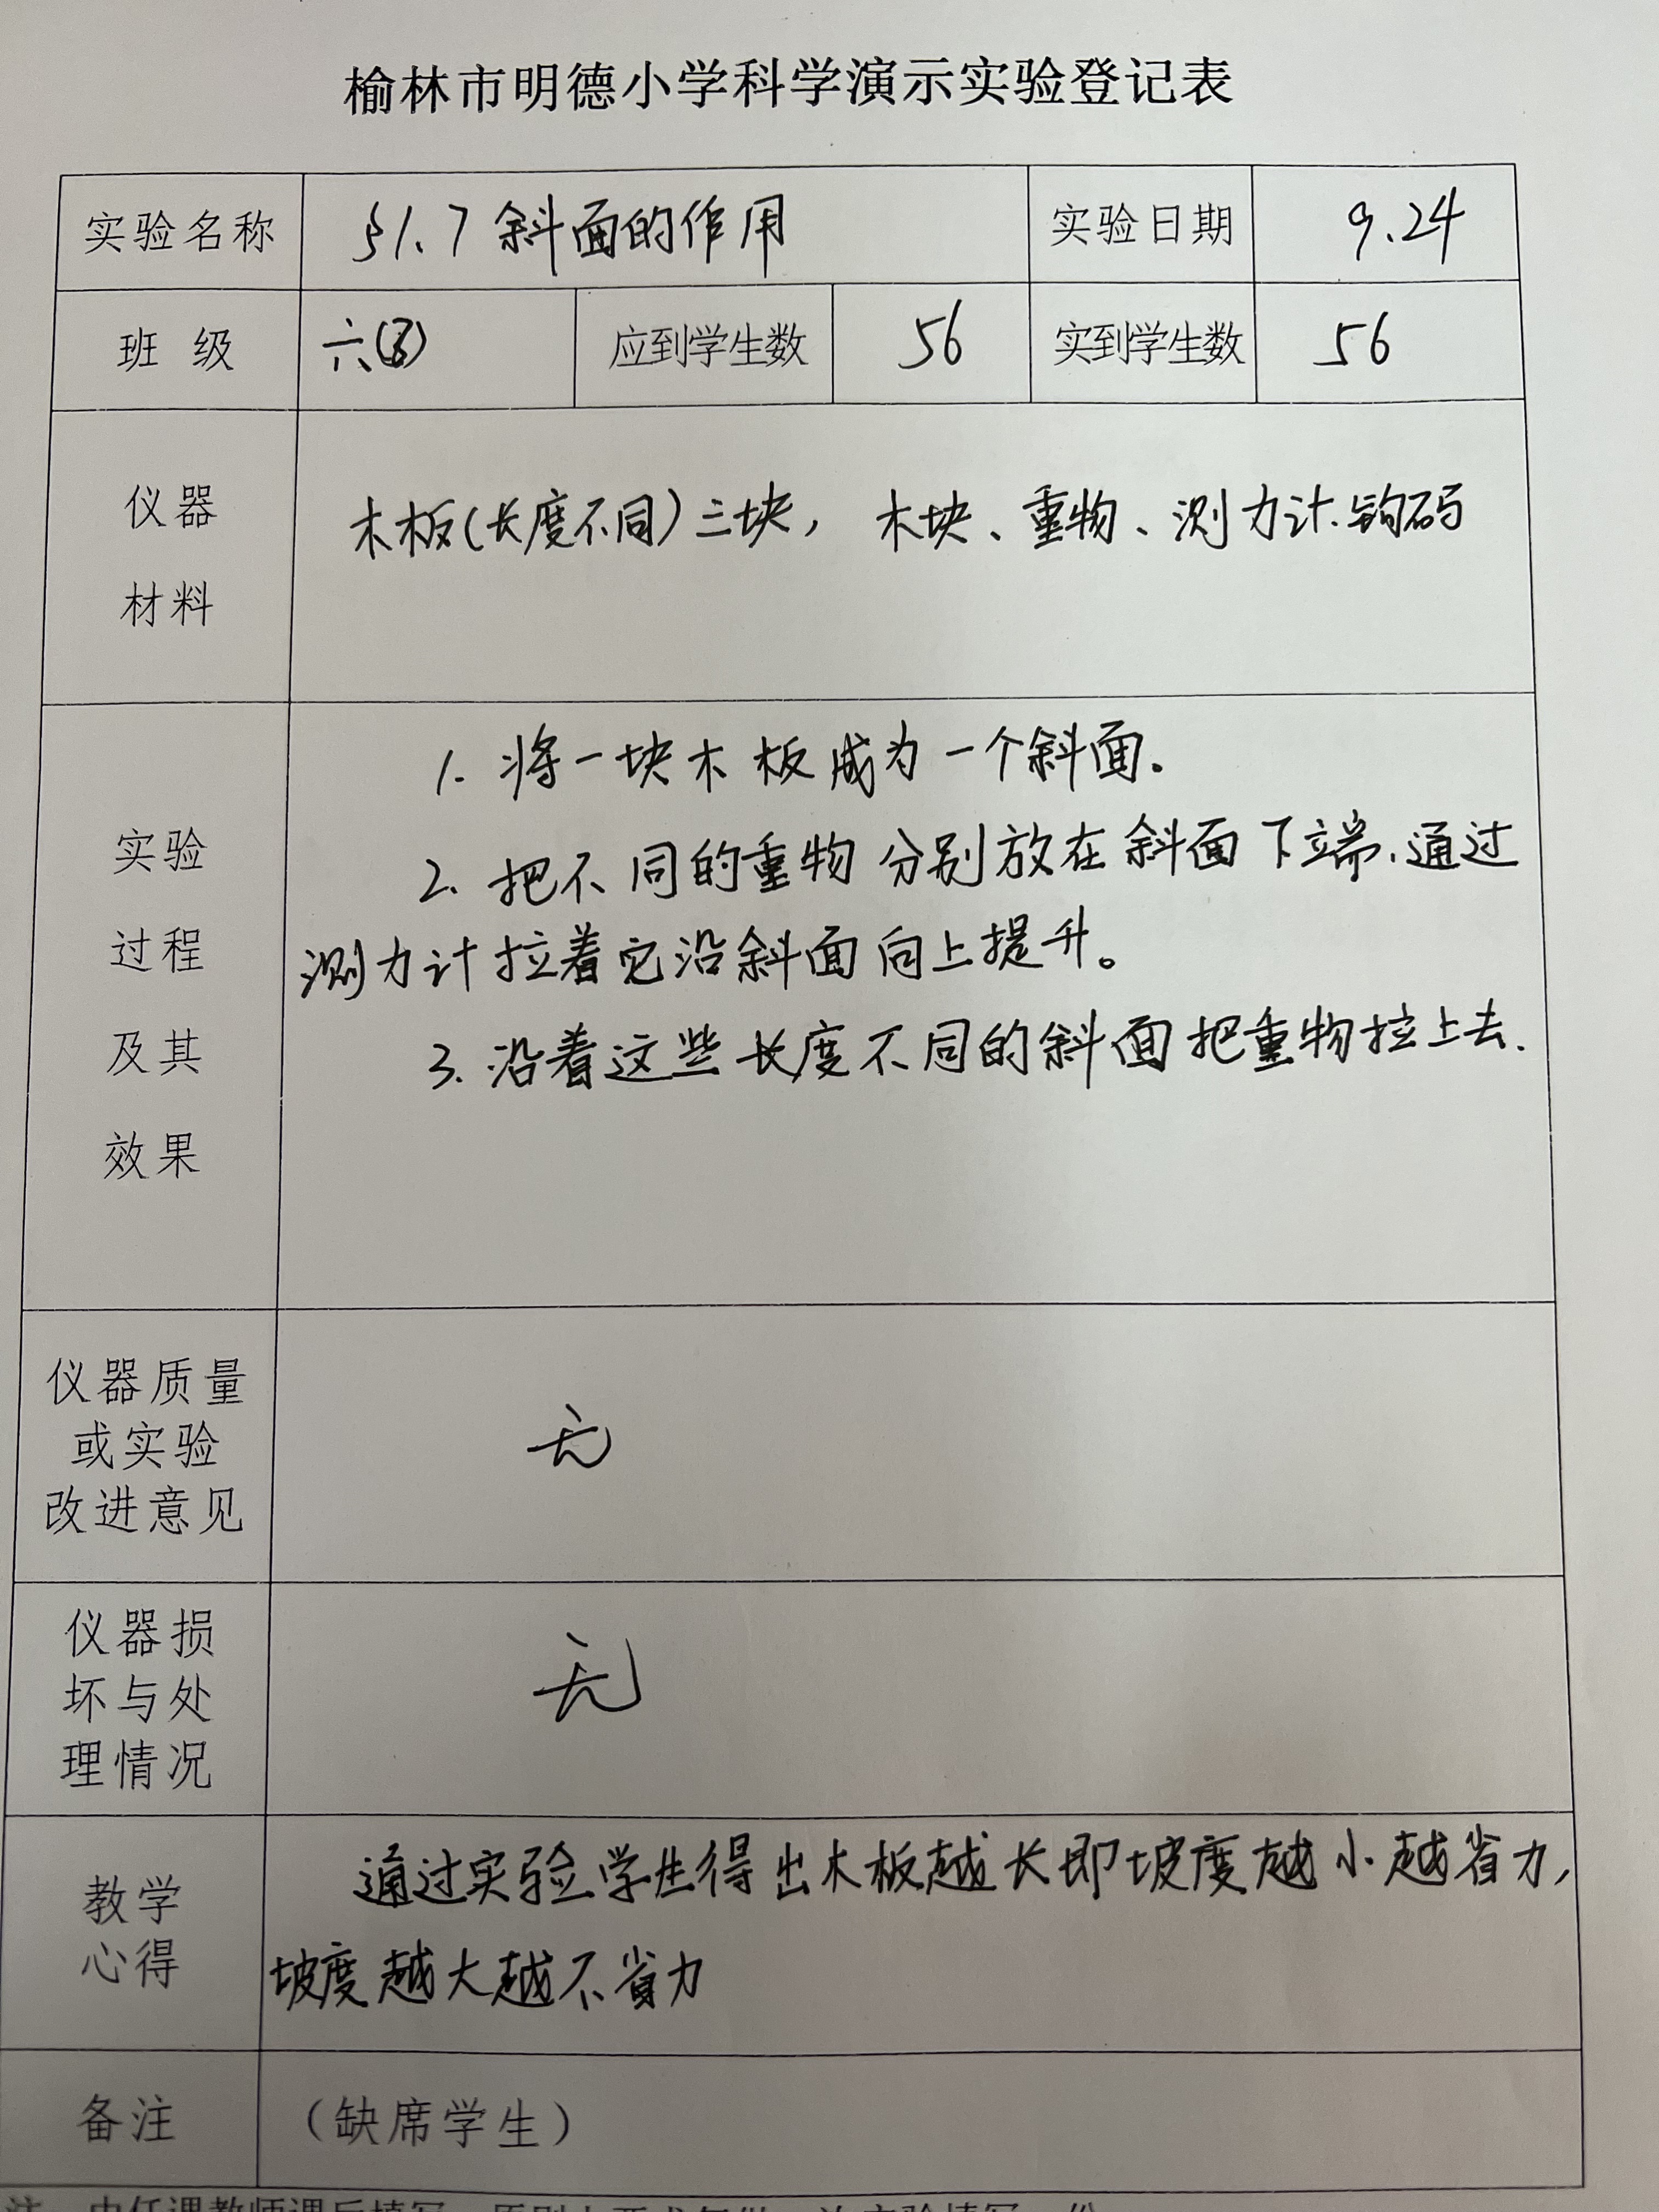 榆林市明德小学科学演示实验登记表
实验名称 §1.7 斜面的作用 实验日期 9.24
班 级 六 应到学生数 56 实到学生数 56
仪器
材料
木板(长度不同)三块, 木块、重物、测力计、钩码
实验
过程
及其
效果
1. 将一块木板成为一个斜面.
2. 把不同的重物分别放在斜面下端,通过
测力计拉着它沿斜面向上提升。
3. 沿着这些长度不同的斜面把重物拉上去.
仪器质量
或实验
改进意见
无
仪器损
坏与处
理情况
无
教学
心得
通过实验学生得出木板越长即坡度越小越省力,
坡度越大越不省力
备注 (缺席学生)